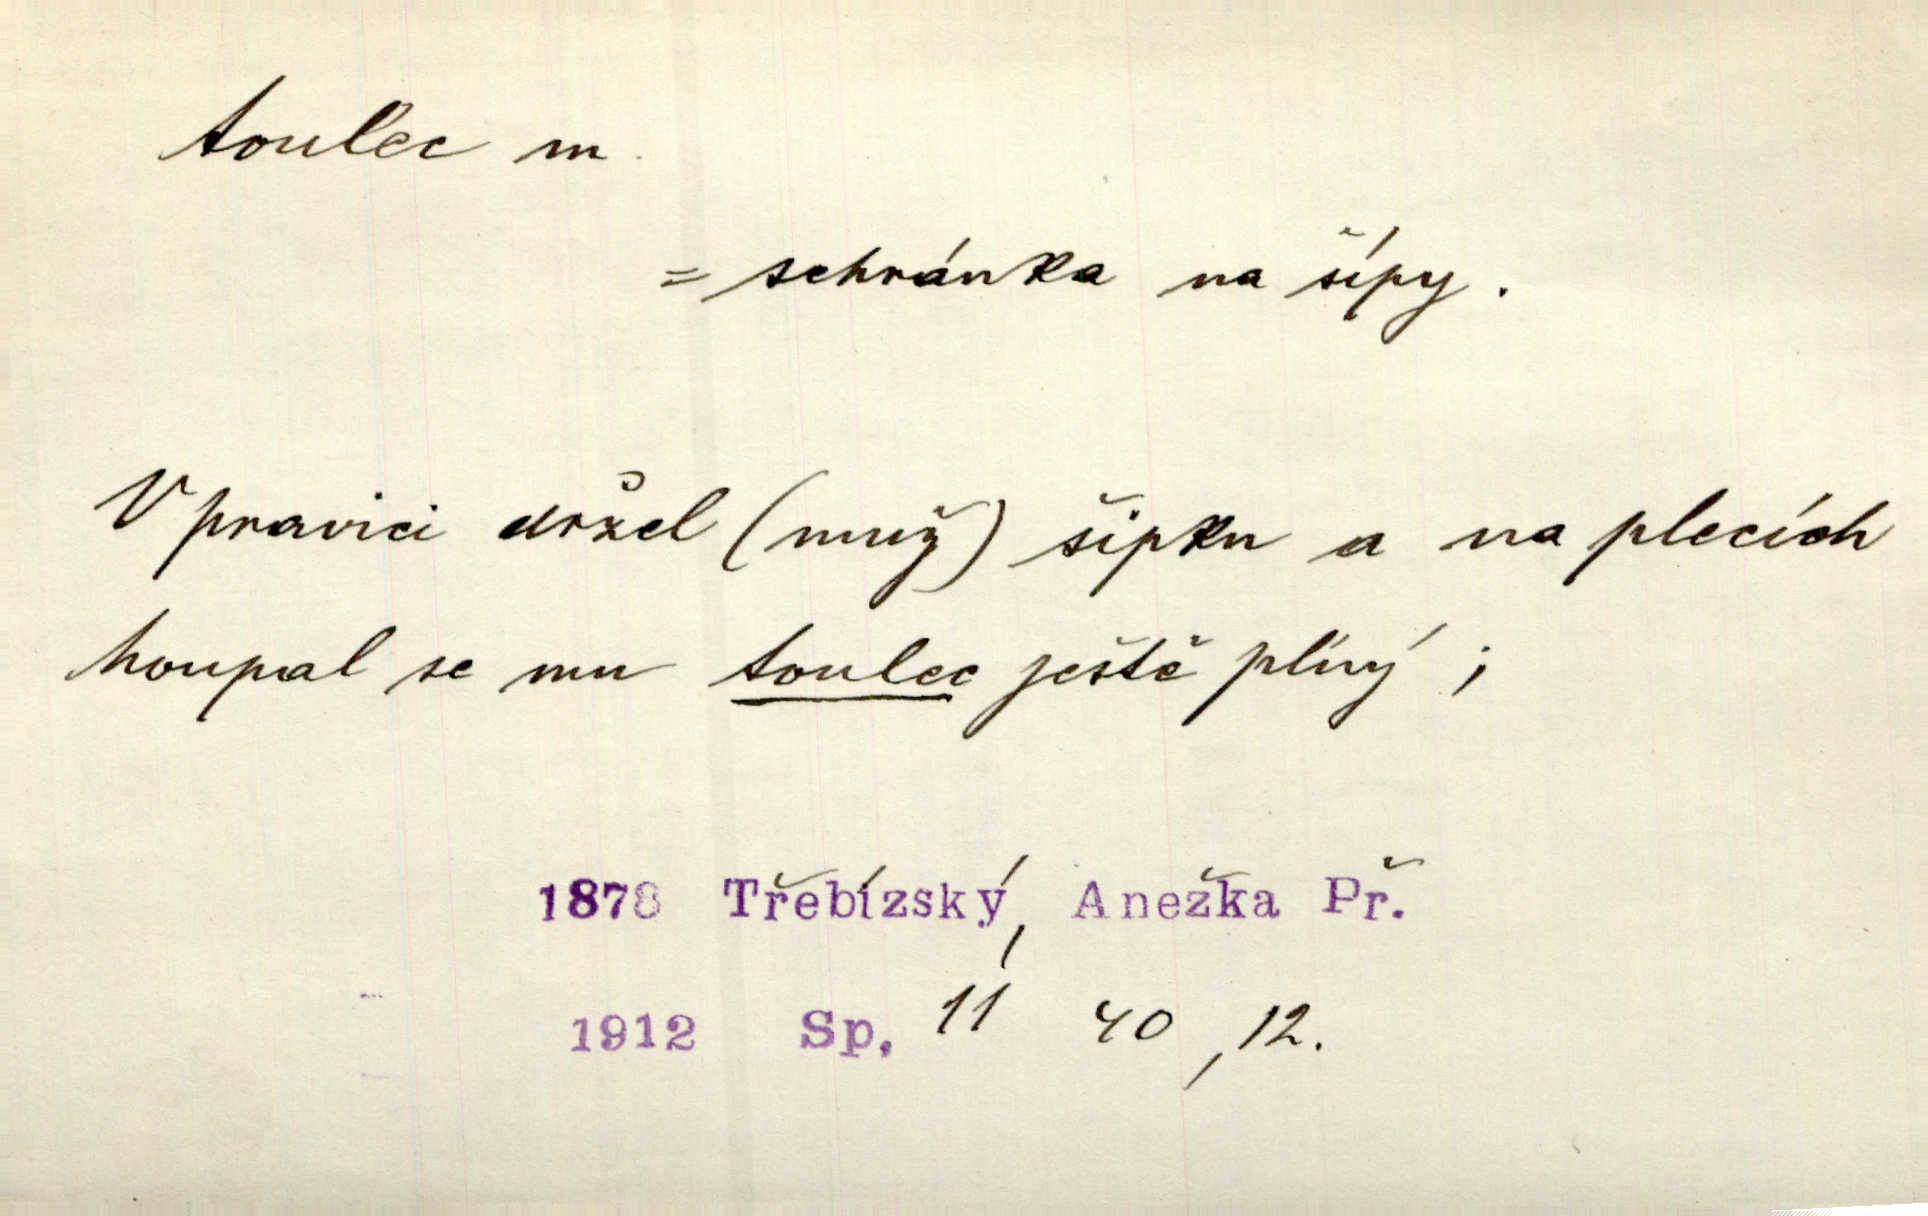 toulec m.
= schránka na šípy.
V pravici držel (muž) šipku a na plecích
houpal se mu toulec ještě plný;
1878 Třebízský, Anežka Př.
1912 Sp. 11 40, 12.